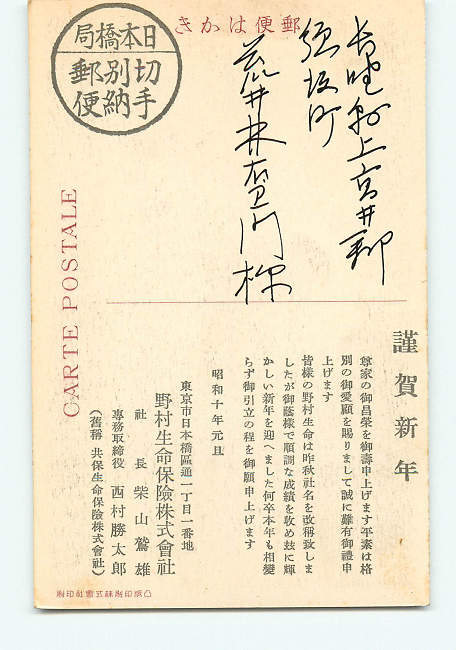 郵便はかき
日本橋局
切手
別納
郵便
長野縣上高井郡
須坂町
荒井林右衛門様
CARTE POSTALE
謹賀新年
尊家の御昌榮を御壽申上げます平素は格
別の御愛願を賜りまして誠に難有御禮申
上げます
皆樣の野村生命は昨秋社名を改稱致しま
したが御蔭樣で順調な成績を收め玆に輝
かしい新年を迎へました何卒本年も相變
らず御引立の程を御願申上げます
昭和十年元旦
東京市日本橋區通一丁目一番地
野村生命保險株式會社
社長柴山鷲雄
專務取締役 西村勝太郎
（舊稱 共保生命保險株式會社）
凸版印刷株式會社印刷